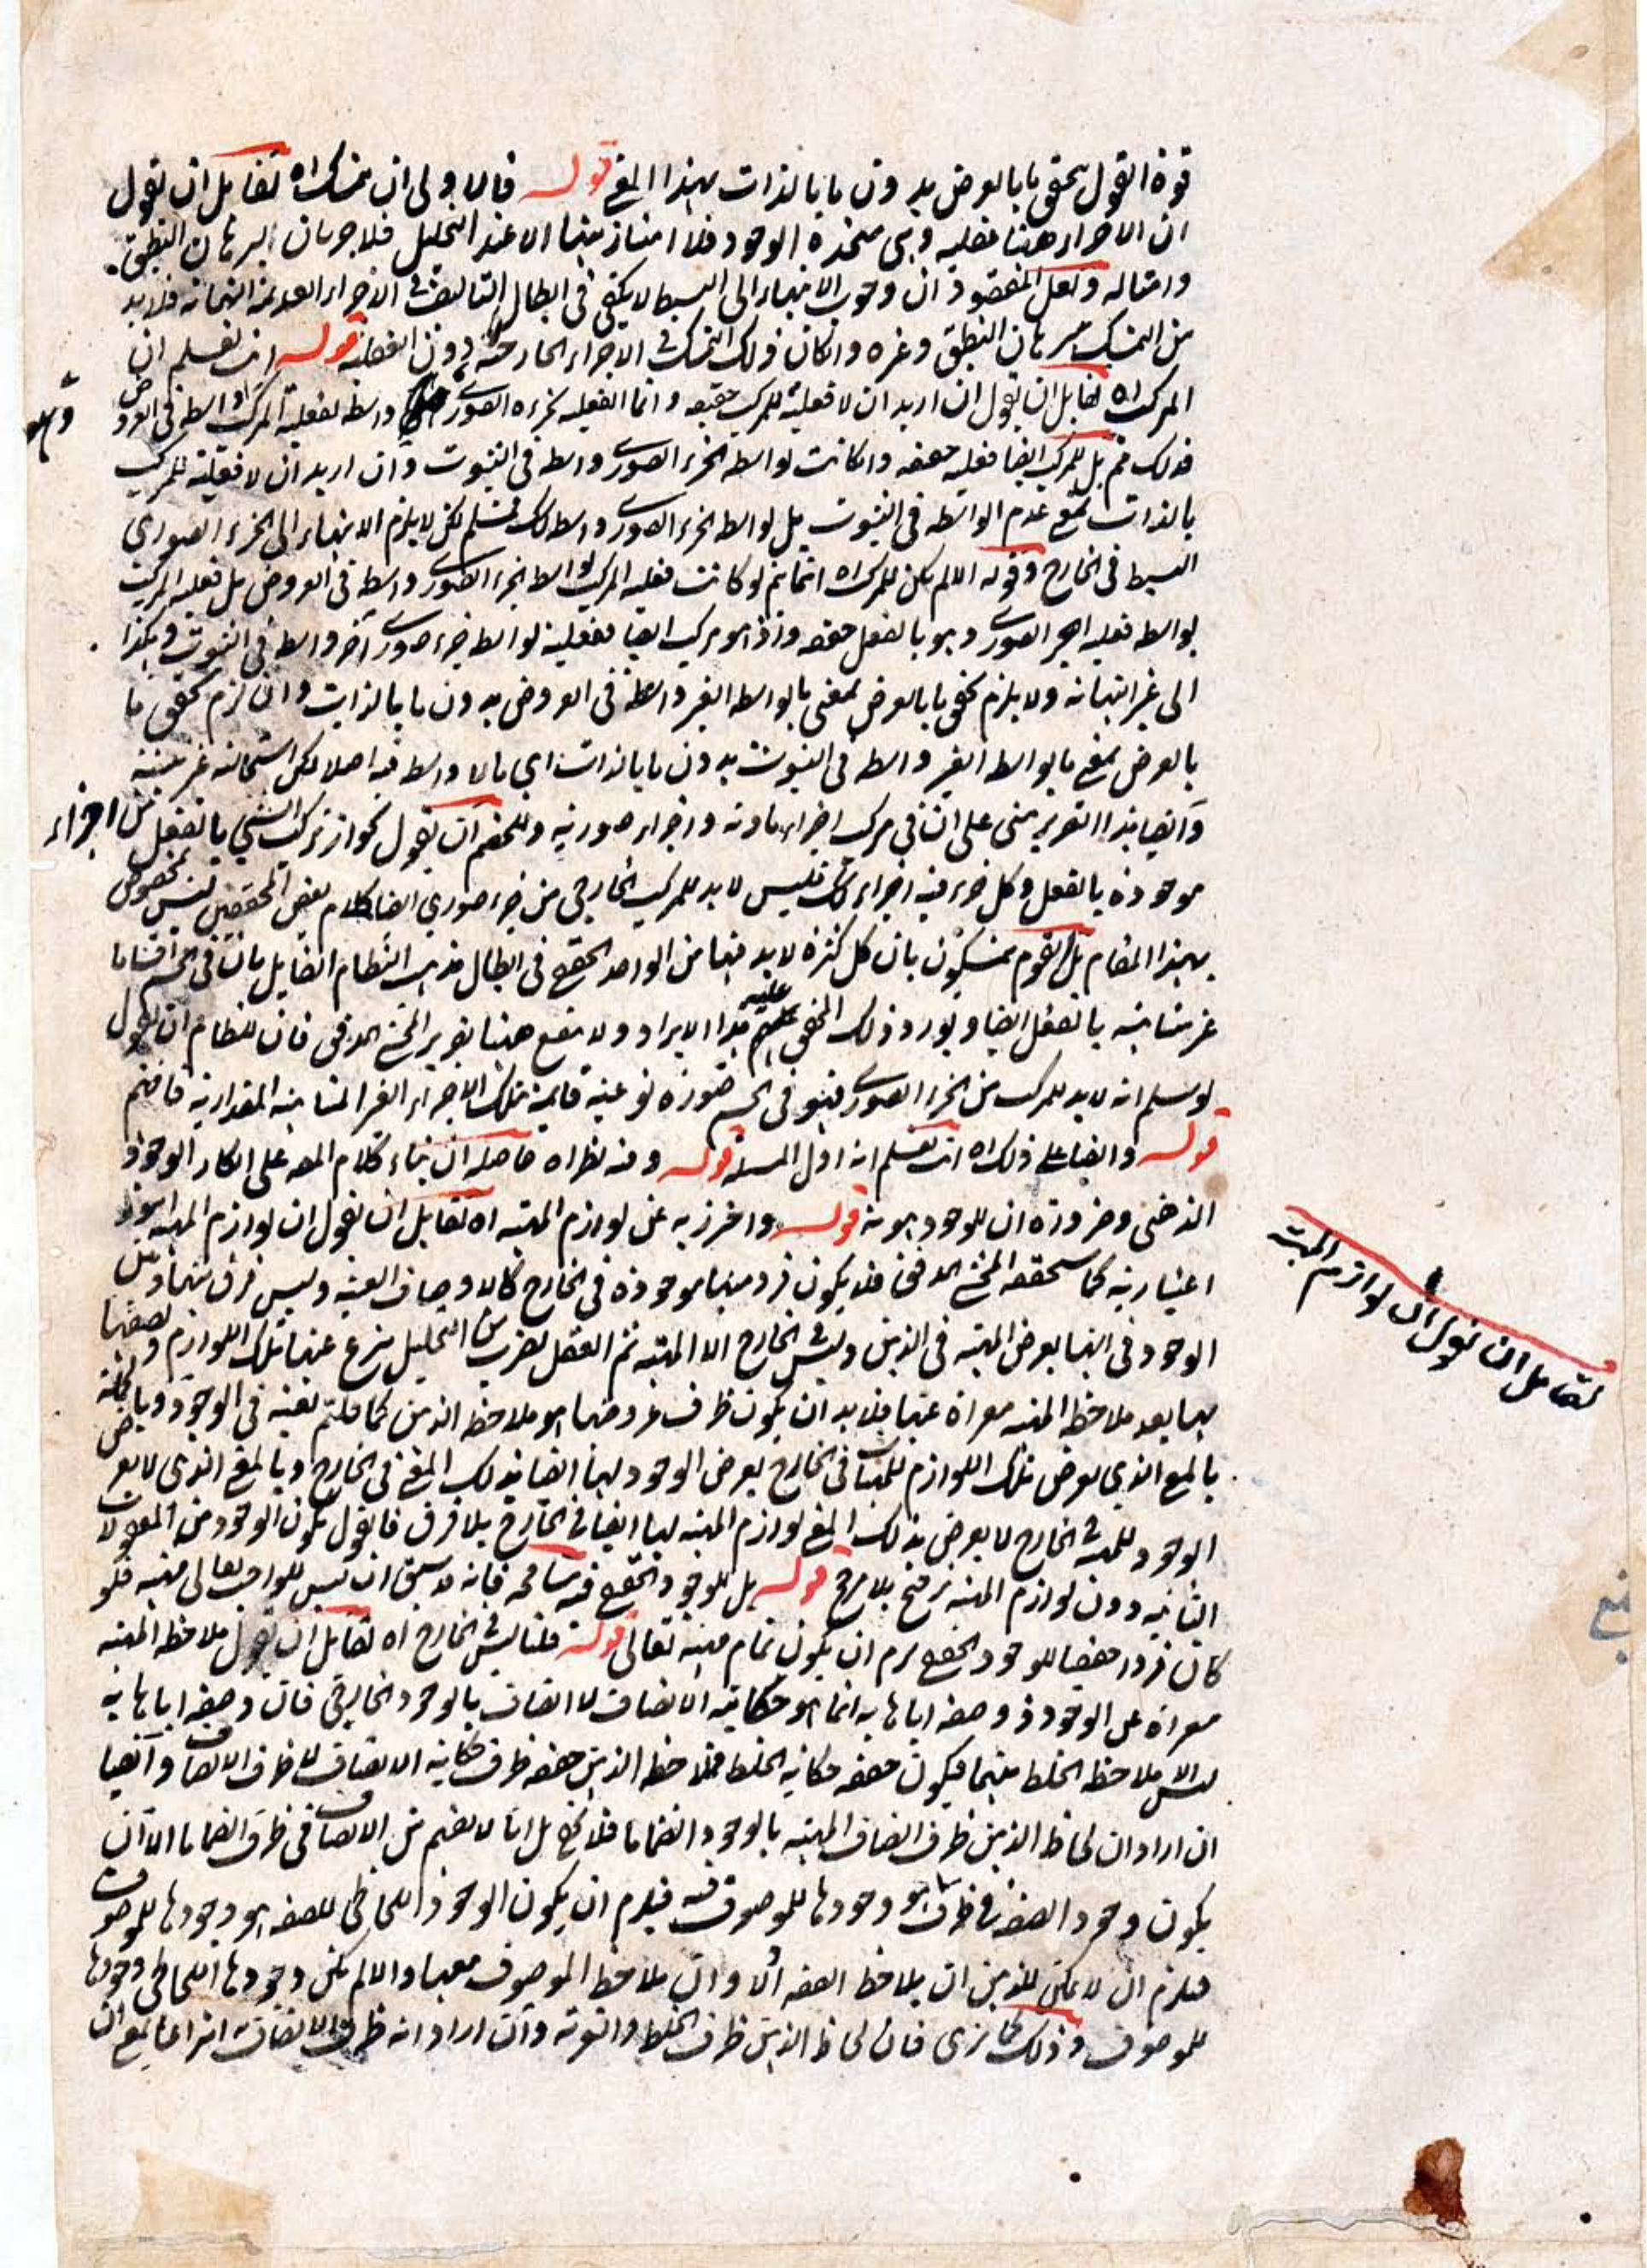 قوة القول بتحقق ما بالعرض بدون ما بالذات بهذا المعنى قوله فالاولى ان يتمسك اه لقائل ان يقول
ان الاجزاء ههنا عقلية وهي متحدة الوجود فلا امتياز بينها الا عند التحليل فلا جريان البرهان التطبيق
وامثاله ولعل المقصود ان وجوب الانتهاء الى البسيط لا يكفي في ابطال التسلسل في الاجزاء العديمة النهاية فلا بد
من التمسك ببرهان التطبيق وغيره وان كان ذلك التمسك في الاجزاء الخارجية دون العقلية قوله انت تعلم ان
المركب اه لقائل ان يقول ان اريد ان لا فعلية للمركب حقيقة وانما الفعلية لجزءه الصوري واسطة لفعلية المركب واسطة في العروض
فذلك مم بل للمركب ايضا فعلية حقيقة وان كانت بواسطة الجزء الصوري واسطة في الثبوت وان اريد ان لا فعلية للمركب
بالذات بمعنى عدم الواسطة في الثبوت بل بواسطة الجزء الصوري واسطة كك فمسلم لكن لا يلزم الانتهاء الى الجزء الصوري
البسيط في الخارج وقوله الا لم يكن للمركب اه انما يتم لو كانت فعلية المركب بواسطة الجزء الصوري واسطة في العروض بل فعلية المركب
بواسطة فعلية الجزء الصوري وهو بالفعل حقيقة واذ هو مركب ايضا ففعليته بواسطة جزء صوري آخر واسطة في الثبوت وهكذا
الى غير النهاية ولا يلزم تحقق ما بالعرض بمعنى ما بواسطة الغير واسطة في العروض بدون ما بالذات وان لزم تحقق ما
بالعرض بمعنى ما بواسطة الغير واسطة في الثبوت بدون ما بالذات اي ما لا واسطة فيه اصلا لكن استحالته غير بينة
وايضا هذا التقرير مبني على ان في مركب اجزاء مادية واجزاء صورية وللخصم ان يقول بجواز تركب الشيء بالفعل من اجزاء
موجودة بالفعل وكل جزء فيه اجزاء كك فليس لا بد للمركب الخارجي من جزء صوري ايضا كلام بعض المحققين ليس بمخصوص
بهذا المقام بل القوم يتمسكون بان كل كثرة لا بد فيها من الواحد الحقيقي في ابطال مذهب النظام القائل بان في الجسم اقساما
غير متناهية بالفعل ايضا ويورد ذلك المحشي عليه هذا الايراد ولا ينفع ههنا تقرير المحشي المدقق فان للنظام ان يقول
لو سلم انه لا بد للمركب من الجزء الصوري فهو في الجسم صورة نوعية قائمة بتلك الاجزاء الغير المتناهية المقدارية فافهم
قوله وايضا على ذلك اه انت تعلم انه اول المسئلة قوله وفيه نظر اه حاصله ان بناء كلام المص على انكار الوجود
الذهني وضرورة ان الوجود هوية قوله واحترز به عن لوازم المهية اه لقائل ان يقول ان لوازم المهية امور
اعتبارية كما سيحققه المحشي المدقق فلا يكون فرد منها موجودة في الخارج كالاوصاف العينية وليس فرق بينها وبين
الوجود في انها يعرض المهية في الذهن وليس في الخارج الا المهية ثم العقل بضرب من التحليل ينتزع عنها تلك اللوازم ويصفها
بها بعد ملاحظة المهية معراة عنها فلا بد ان يكون ظرف عروضها هو ملاحظة الذهن كما قلتم بعينه في الوجود وبالجملة
بالمعنى الذي يعرض تلك اللوازم للمهيات في الخارج يعرض الوجود لها ايضا بذلك المعنى في الخارج وبالمعنى الذي لا يعرض
الوجود للمهية في الخارج لا يعرض بذلك المعنى لوازم المهية لها ايضا في الخارج بلا فرق فالقول بكون الوجود من المعقولات
الثانية دون لوازم المهية ترجيح بلا مرجح قوله بل للوجود الحقيقي فيه مسامحة فانه قد سبق ان ليس للواجب تعالى مهية فلو
كان فردا حقيقيا للوجود الحقيقي يلزم ان يكون تمام مهيته تعالى قوله قلنا ليس في الخارج اه لقائل ان يقول ملاحظة المهية
معراة عن الوجود ووصفه اياها به انما هو حكاية الاتصاف لا اتصاف بالوجود الخارجي فان وصفه اياها به
ليس الا ملاحظة الخلط بينهما فيكون حقيقة حكاية الخلط فملاحظة الذهن حقيقة ظرف حكاية الاتصاف لا ظرف الاتصاف وايضا
ان اراد ان لحاظ الذهن ظرف اتصاف المهية بالوجود انضماما فلا يخفى بل انا لا نفهم من الاتصاف في ظرف انضماما الا ان
يكون وجود الصفة في ظرف هو وجودها للموصوف فيه فيلزم ان يكون الوجود اللحاظي للصفة هو وجودها للموصوف
فيلزم ان لا يمكن للذهن ان يلاحظ الصفة الا وان يلاحظ الموصوف معها والا لم يكن وجودها اللحاظي وجودها
للموصوف وذلك كما ترى فان لحاظ الذهن ظرف الخلط والتعرية وان اراد انه ظرف الاتصاف به انتزاعا بمعنى ان
لقائل ان يقول ان لوازم المهية